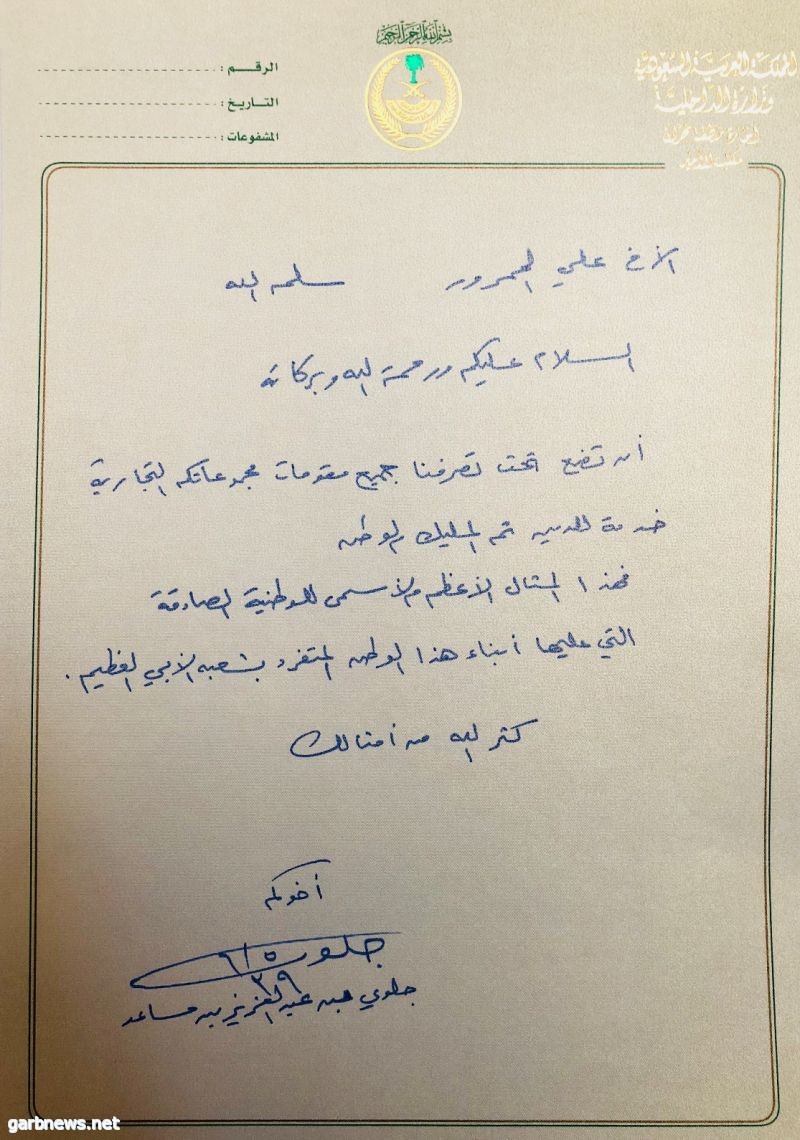 بسم الله الرحمن الرحيم
المملكة العربية السعودية
وزارة الداخلية
إمارة منطقة نجران
مكتب الأمير
الرقم :
التاريخ :
المشفوعات :
الأخ علي الحمرور سلمه الله
السلام عليكم ورحمة الله وبركاته
أن تضع تحت تصرفنا جميع مقومات مجموعاتكم التجارية
خدمة للدين ثم المليك والوطن
فهذا المثال الأعظم والأسمى للوطنية الصادقة
التي عليها أبناء هذا الوطن المتفرد بشعبه الأبي العظيم .
كثر الله من أمثالك
أخوكم
جلوي
جلوي بن عبدالعزيز بن مساعد
garbnews.net